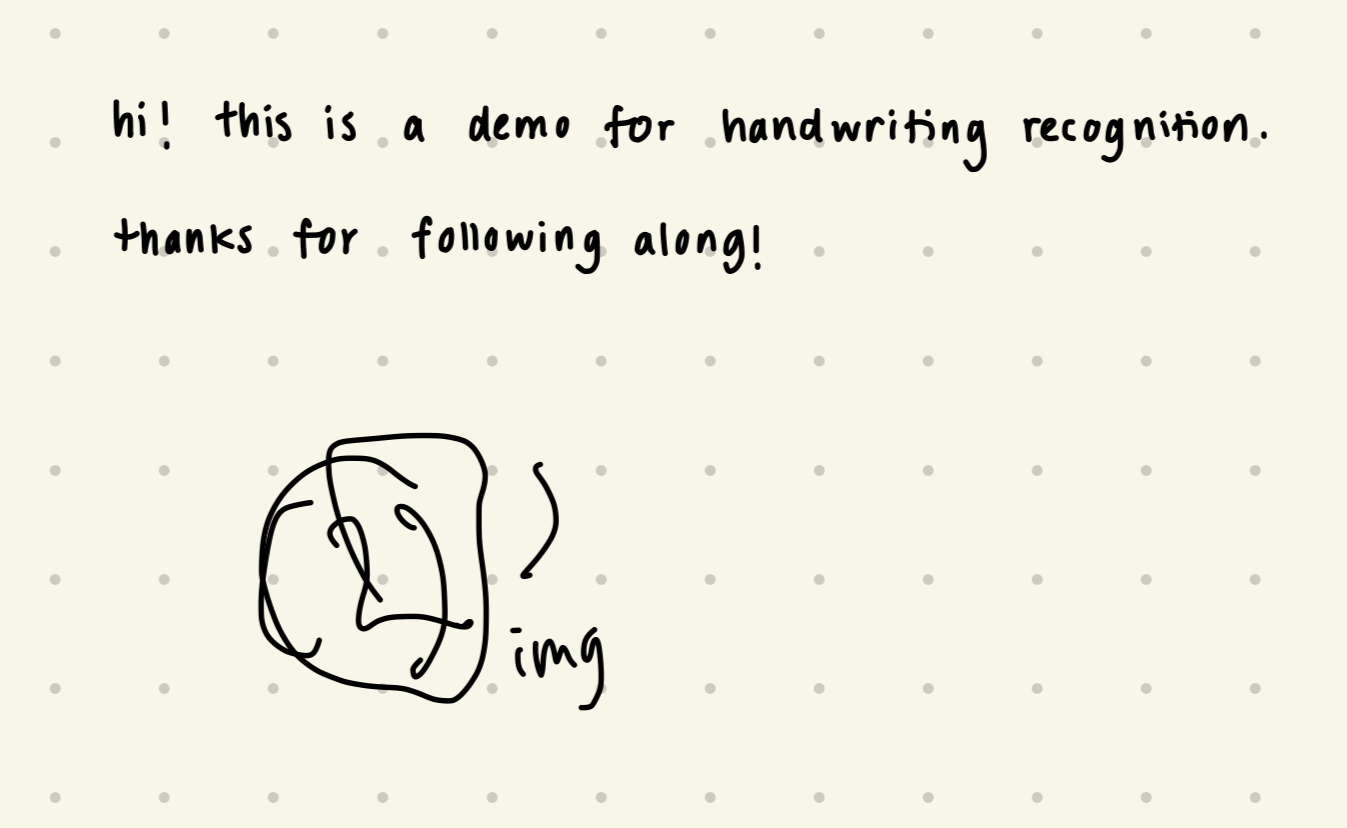 hi! this is a demo for handwriting recognition.
thanks for following along!
img